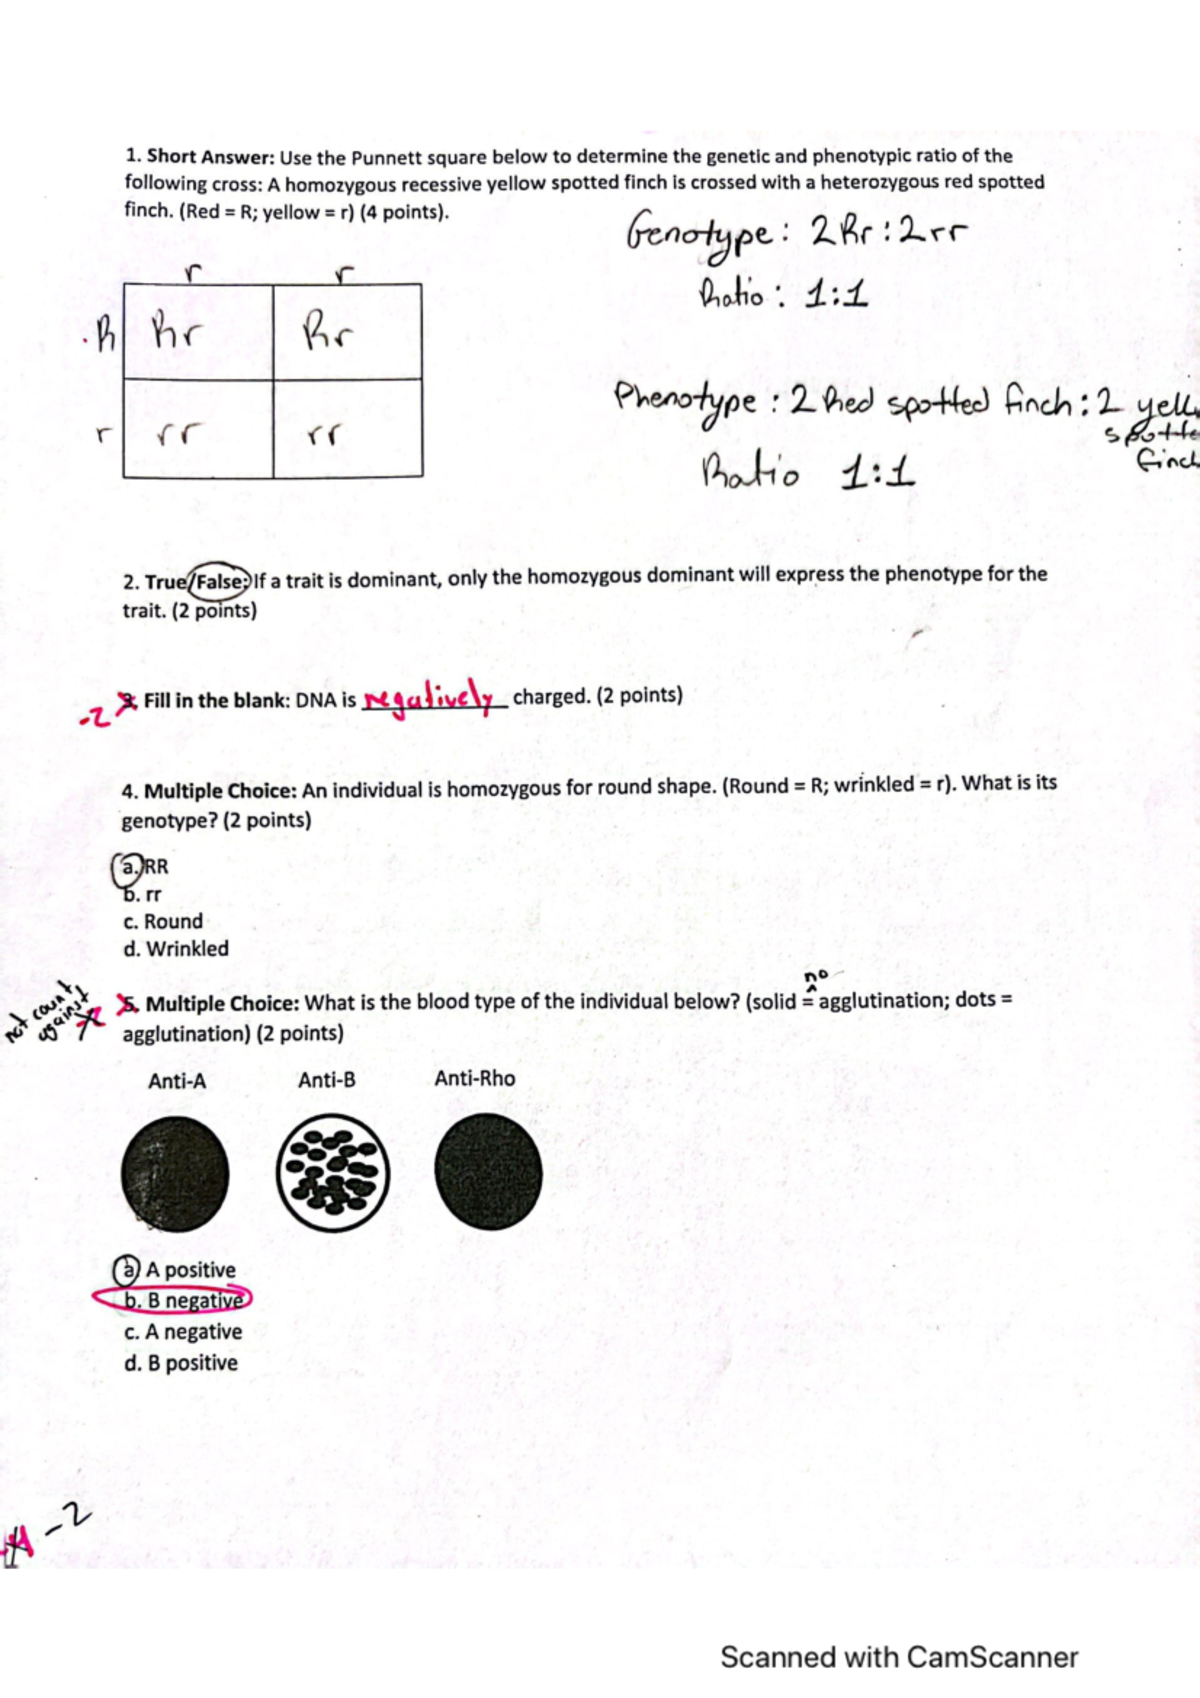 1. Short Answer: Use the Punnett square below to determine the genetic and phenotypic ratio of the
following cross: A homozygous recessive yellow spotted finch is crossed with a heterozygous red spotted
finch. (Red = R; yellow = r) (4 points).
Genotype: 2Rr:2rr
Ratio: 1:1
r r
R Rr Rr
r rr rr
Phenotype: 2 Red spotted finch: 2
spotte
finch
Ratio 1:1
2. True/False: If a trait is dominant, only the homozygous dominant will express the phenotype for the
trait. (2 points)
-2 3. Fill in the blank: DNA is negatively charged. (2 points)
4. Multiple Choice: An individual is homozygous for round shape. (Round = R; wrinkled = r). What is its
genotype? (2 points)
a. RR
b. rr
c. Round
d. Wrinkled
not count
against
no
5. Multiple Choice: What is the blood type of the individual below? (solid = agglutination; dots =
agglutination) (2 points)
Anti-A Anti-B Anti-Rho
a. A positive
b. B negative
c. A negative
d. B positive
-2
Scanned with CamScanner